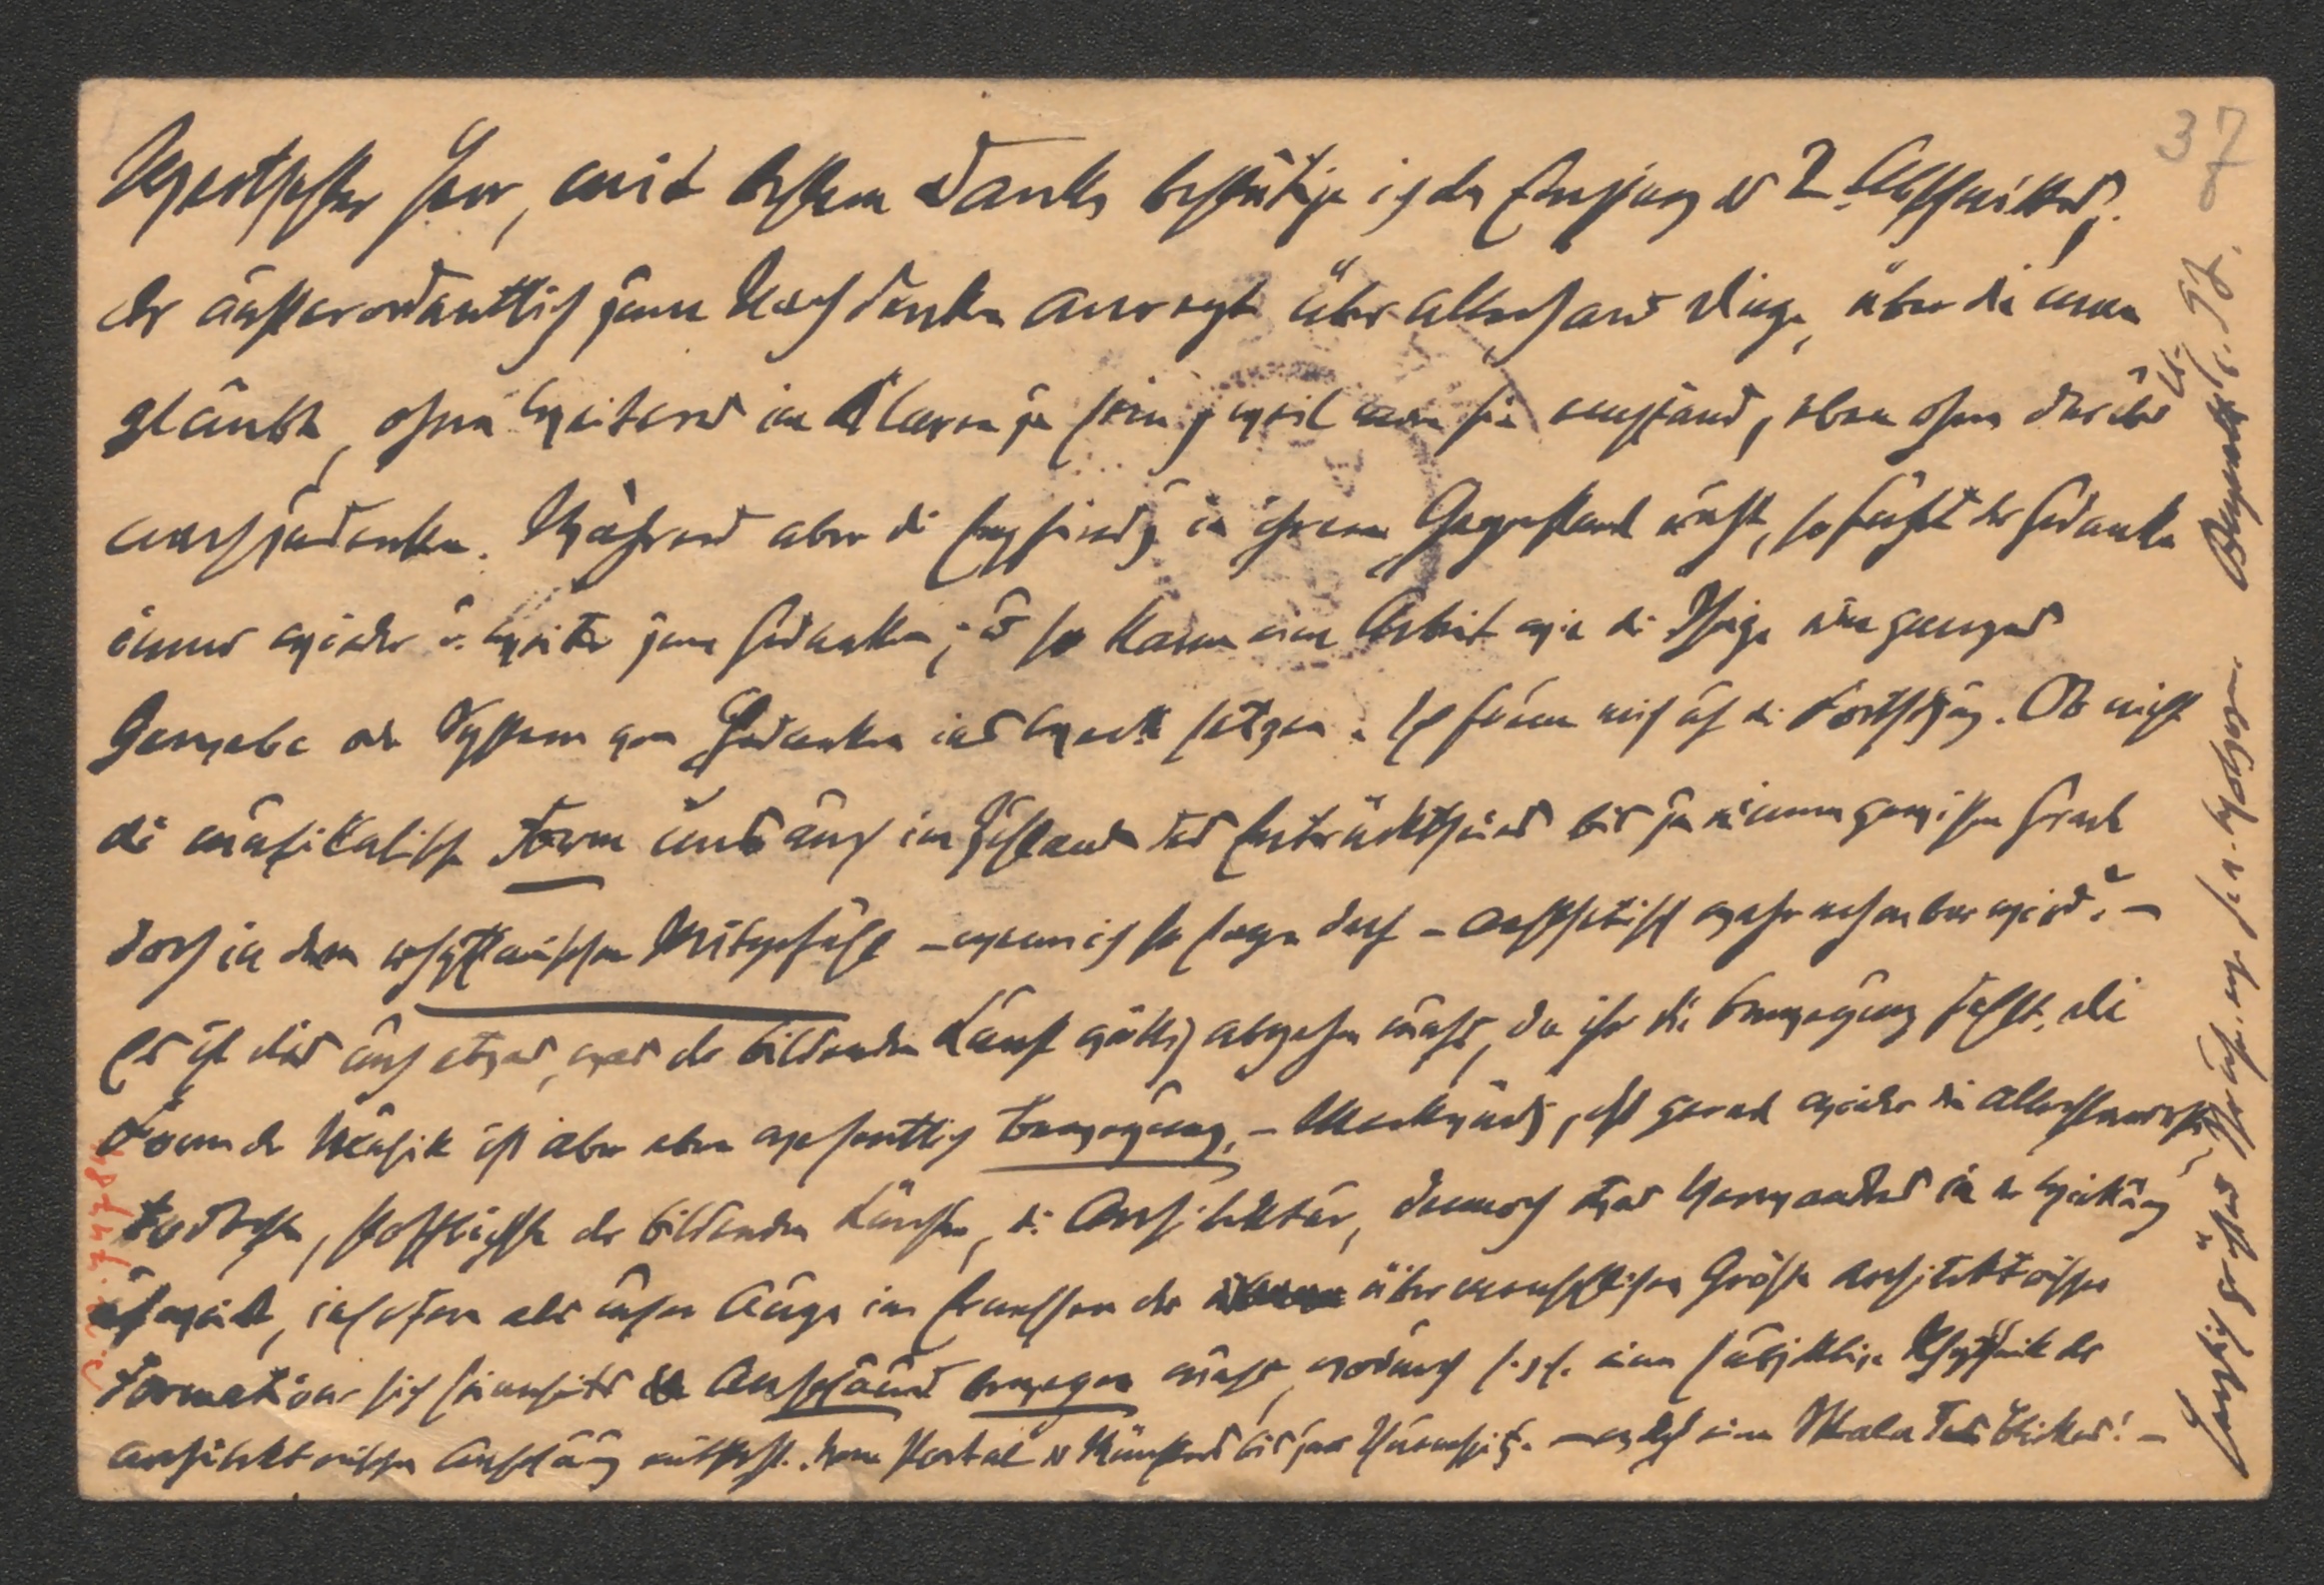 37
Werthester Herr, mit bestem Danke bestätige ich den Empfang des 2. Abschnittes,
der außerordentlich zum Nachdenken anregt über allerhand Dinge, über die man
glaubte, ohne Weiteres im Klaren zu sein, weil man sie empfand, eben ohne darüber
nachzudenken. Während aber die Empfindg in ihrem Gegenstand ruht, so führt der Gedanke
immer wieder u. weiter zum Gedanken; u so kann eine Arbeit wie die Ihrige ein ganzes
Gewebe oder System von Gedanken ins Werk setzen. Ich freue mich auf die Fortsetzung. Ob nicht
die musikalische Form uns auch im Zustande des Entrücktseins bis zu einem gewissen Grade
doch in dem rhythmischen Mitgefühl – wenn ich so sagen darf – aesthetisch wahrnehmbar wird? –
Es ist dies auch etwas, was der bildenden Kunst völlig abgehen muß, da ihr die Bewegung fehlt. Die
Form der Musik ist aber eben wesentlich Bewegung. – Merkwürdig, daß gerade wieder die allerstarrste,
todteste, stofflichste der bildenden Künste, die Architektur, dennoch etwas Verwandtes in der Wirkung
aufweist, insofern als unser Auge im Erfassen der übermenschlichen Größe architektonischer
Formationen sich seinerseits anschauend bewegen muß, wodurch s. z. s. eine subjektive Rhythmik der
architektonischen Anschauung entsteht. Vom Portal des Münsters bis zur Thurmspitze – welch eine Skala des Blickes! –
Herzlich grüßend Ihr H. v. Wolzogen. Bayreuth